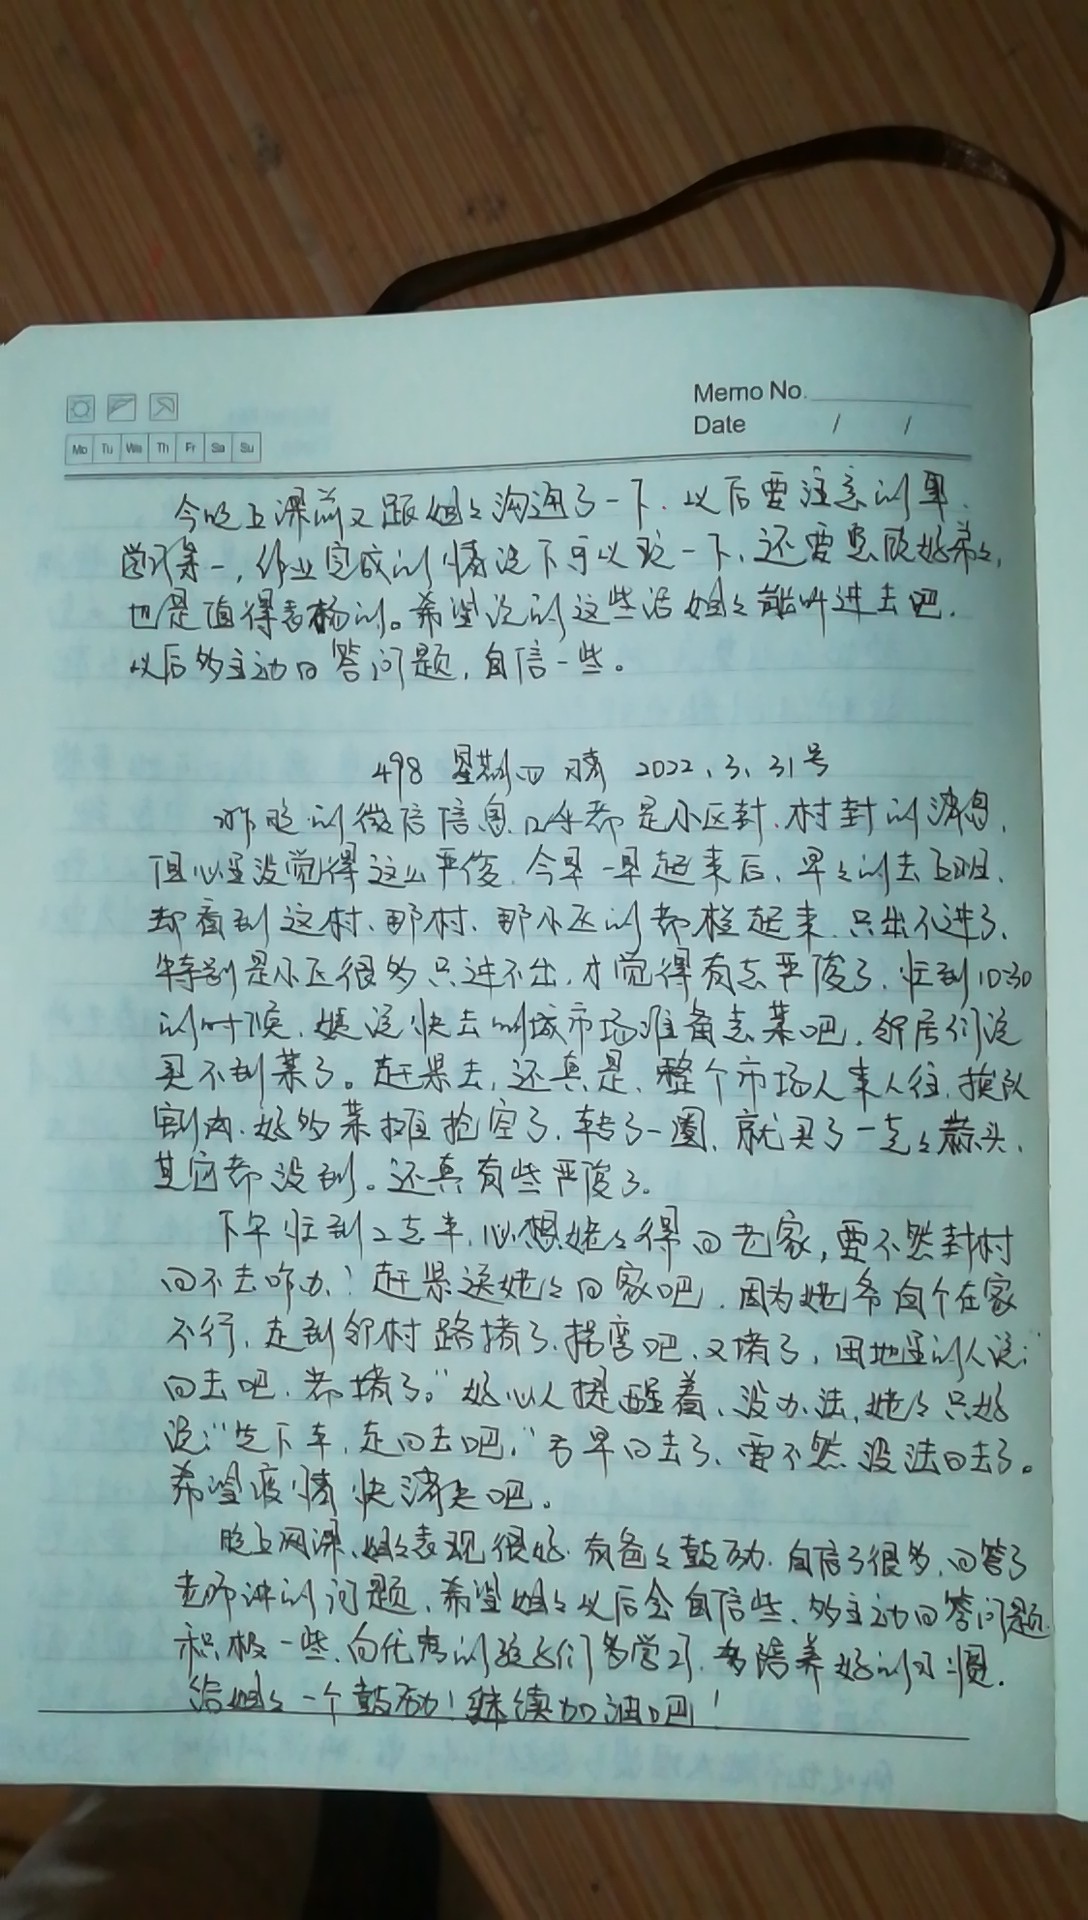 Memo No.
Date / /
Mo Tu We Th Fr Sa Su
今晚上课前又跟姐姐沟通了一下,以后要注意的事,
学习第一,作业完成的情况下可以玩一下,还要照顾好弟弟,
也是值得表扬的。希望说的这些话姐姐能听进去吧,
以后多主动回答问题,自信一些。
498 星期四 晴 2022、3、31号
昨晚的微信信息几乎都是小区封、村封的消息,
但心里没觉得这么严俊,今早一早起来后,早早的去上班,
却看到这村、那村、那小区的都栏起来,只出不进了、
特别是小区很多只进不出,才觉得有点严俊了,忙到10:30
的时候,姨说快去 城市场准备点菜吧,邻居们说
买不到菜了。赶紧去,还真是,整个市场人来人往,挨队
割肉,好多菜摊抢空了,转了一圈,就买了一点点蒜头,
其它都没到。还真有些严俊了。
下午忙到2点半,心想姥姥得回老家,要不然封村
回不去咋办!赶紧送姥姥回家吧,因为姥爷自个在家
不行,走到邻村路堵了,拐弯吧,又堵了,田地里的人说:“
回去吧,都堵了。”好心人提醒着,没办法,姥姥只好
说:“先下车,走回去吧,”方早回去了,要不然没法回去了。
希望疫情快消失吧。
晚上网课,姐姐表现很好,有爸爸鼓励,自信了很多,回答了
老师讲的问题,希望姐姐以后会自信些,多主动回答问题,
积极一些,向优秀的孩子们多学习,多培养好的习惯,
给姐姐一个鼓励!继续加油吧!